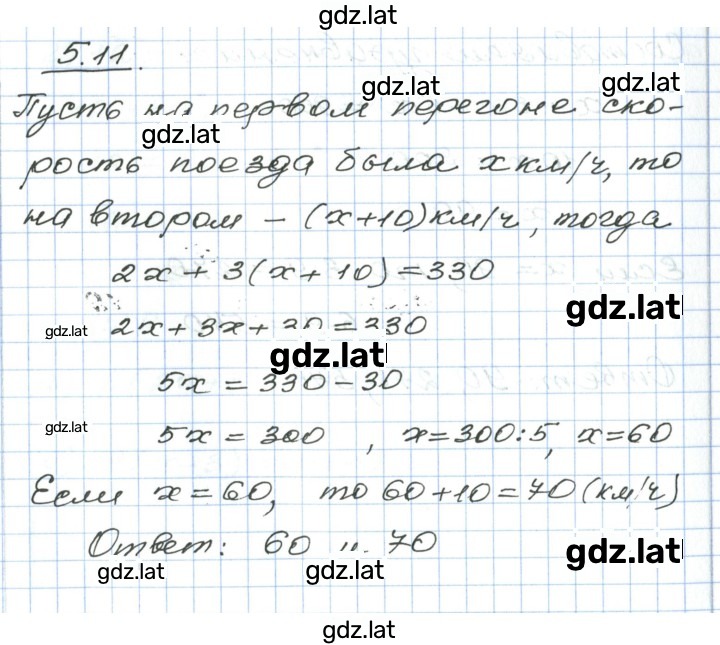 gdz.lat
5.11.
gdz.lat gdz.lat
Пусть на первом перегоне ско-
gdz.lat
рость поезда была x км/ч, то
на втором - (x+10) км/ч, тогда
2x + 3(x + 10) = 330
gdz.lat
gdz.lat 2x + 3x + 30 = 330
gdz.lat
5x = 330 - 30
gdz.lat 5x = 300 , x = 300:5, x = 60
Если x = 60, то 60 + 10 = 70 (км/ч)
Ответ: 60 и 70
gdz.lat gdz.lat gdz.lat
gdz.lat